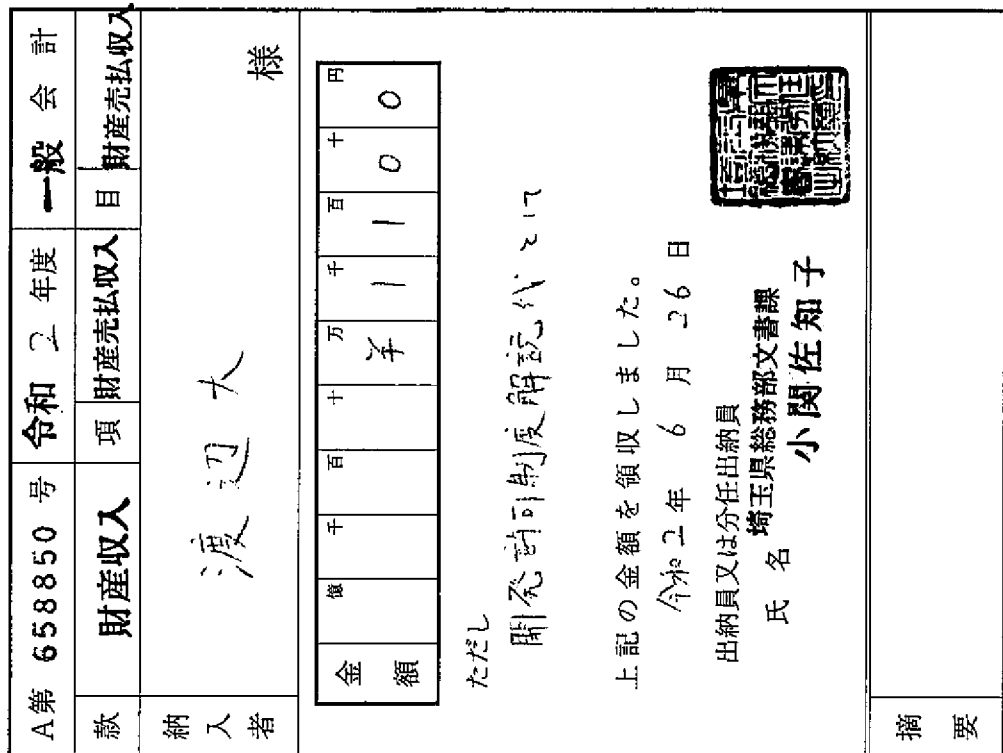 A第 658850 号 令和 2 年度 一般 会計
款 財産収入 項 財産売払収入 目 財産売払収入
納入者 渡辺大 様
金額 億 千 百 十 万 千 百 十 円
¥ 1 1 0 0
ただし
開発許可制度解説代として
上記の金額を領収しました。
令和2年 6 月 26 日
出納員又は分任出納員
埼玉県総務部文書課
氏名 小関佐知子
摘要